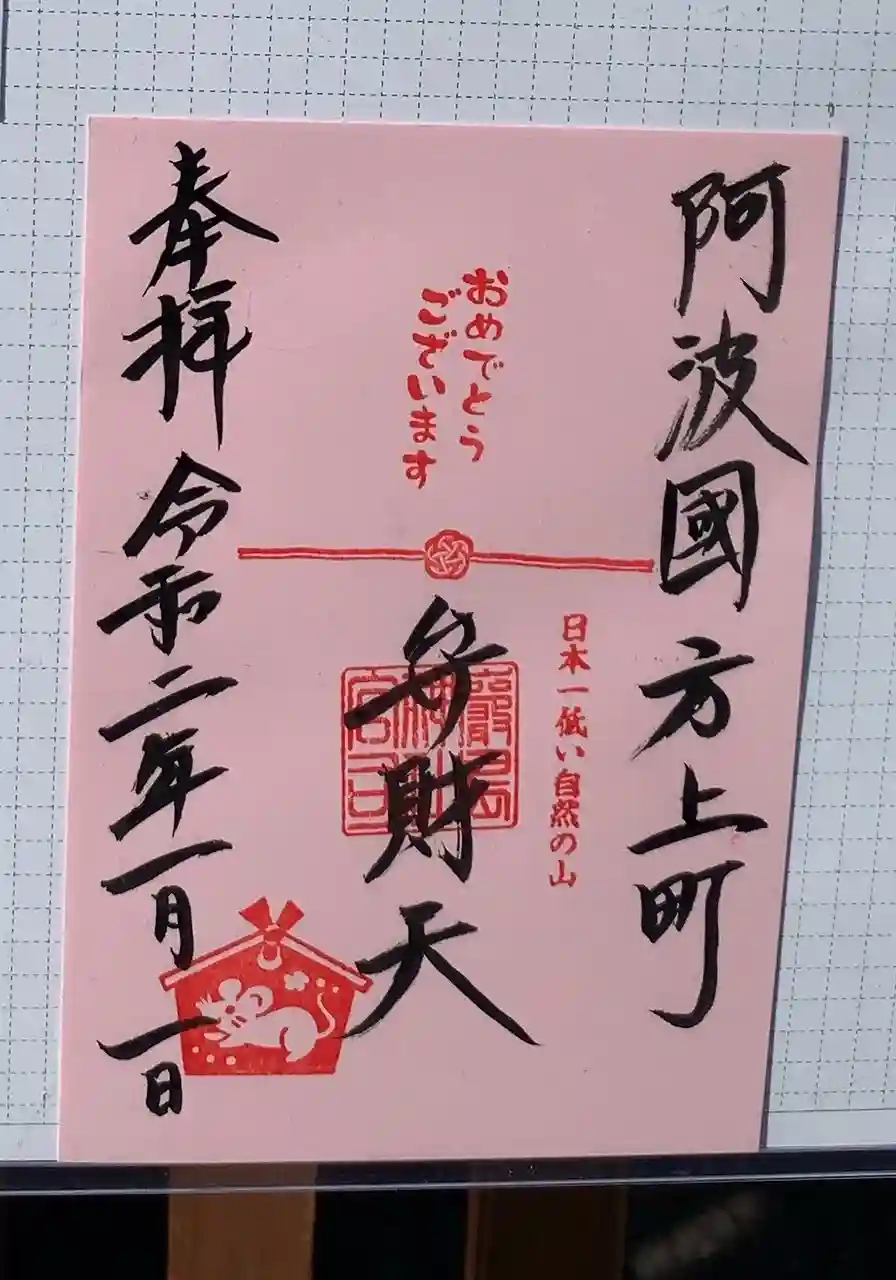 阿波國方上町
日本一低い自然の山
おめでとう
ございます
弁財天
嚴島
神社
宮司
奉拝 令和二年一月一日